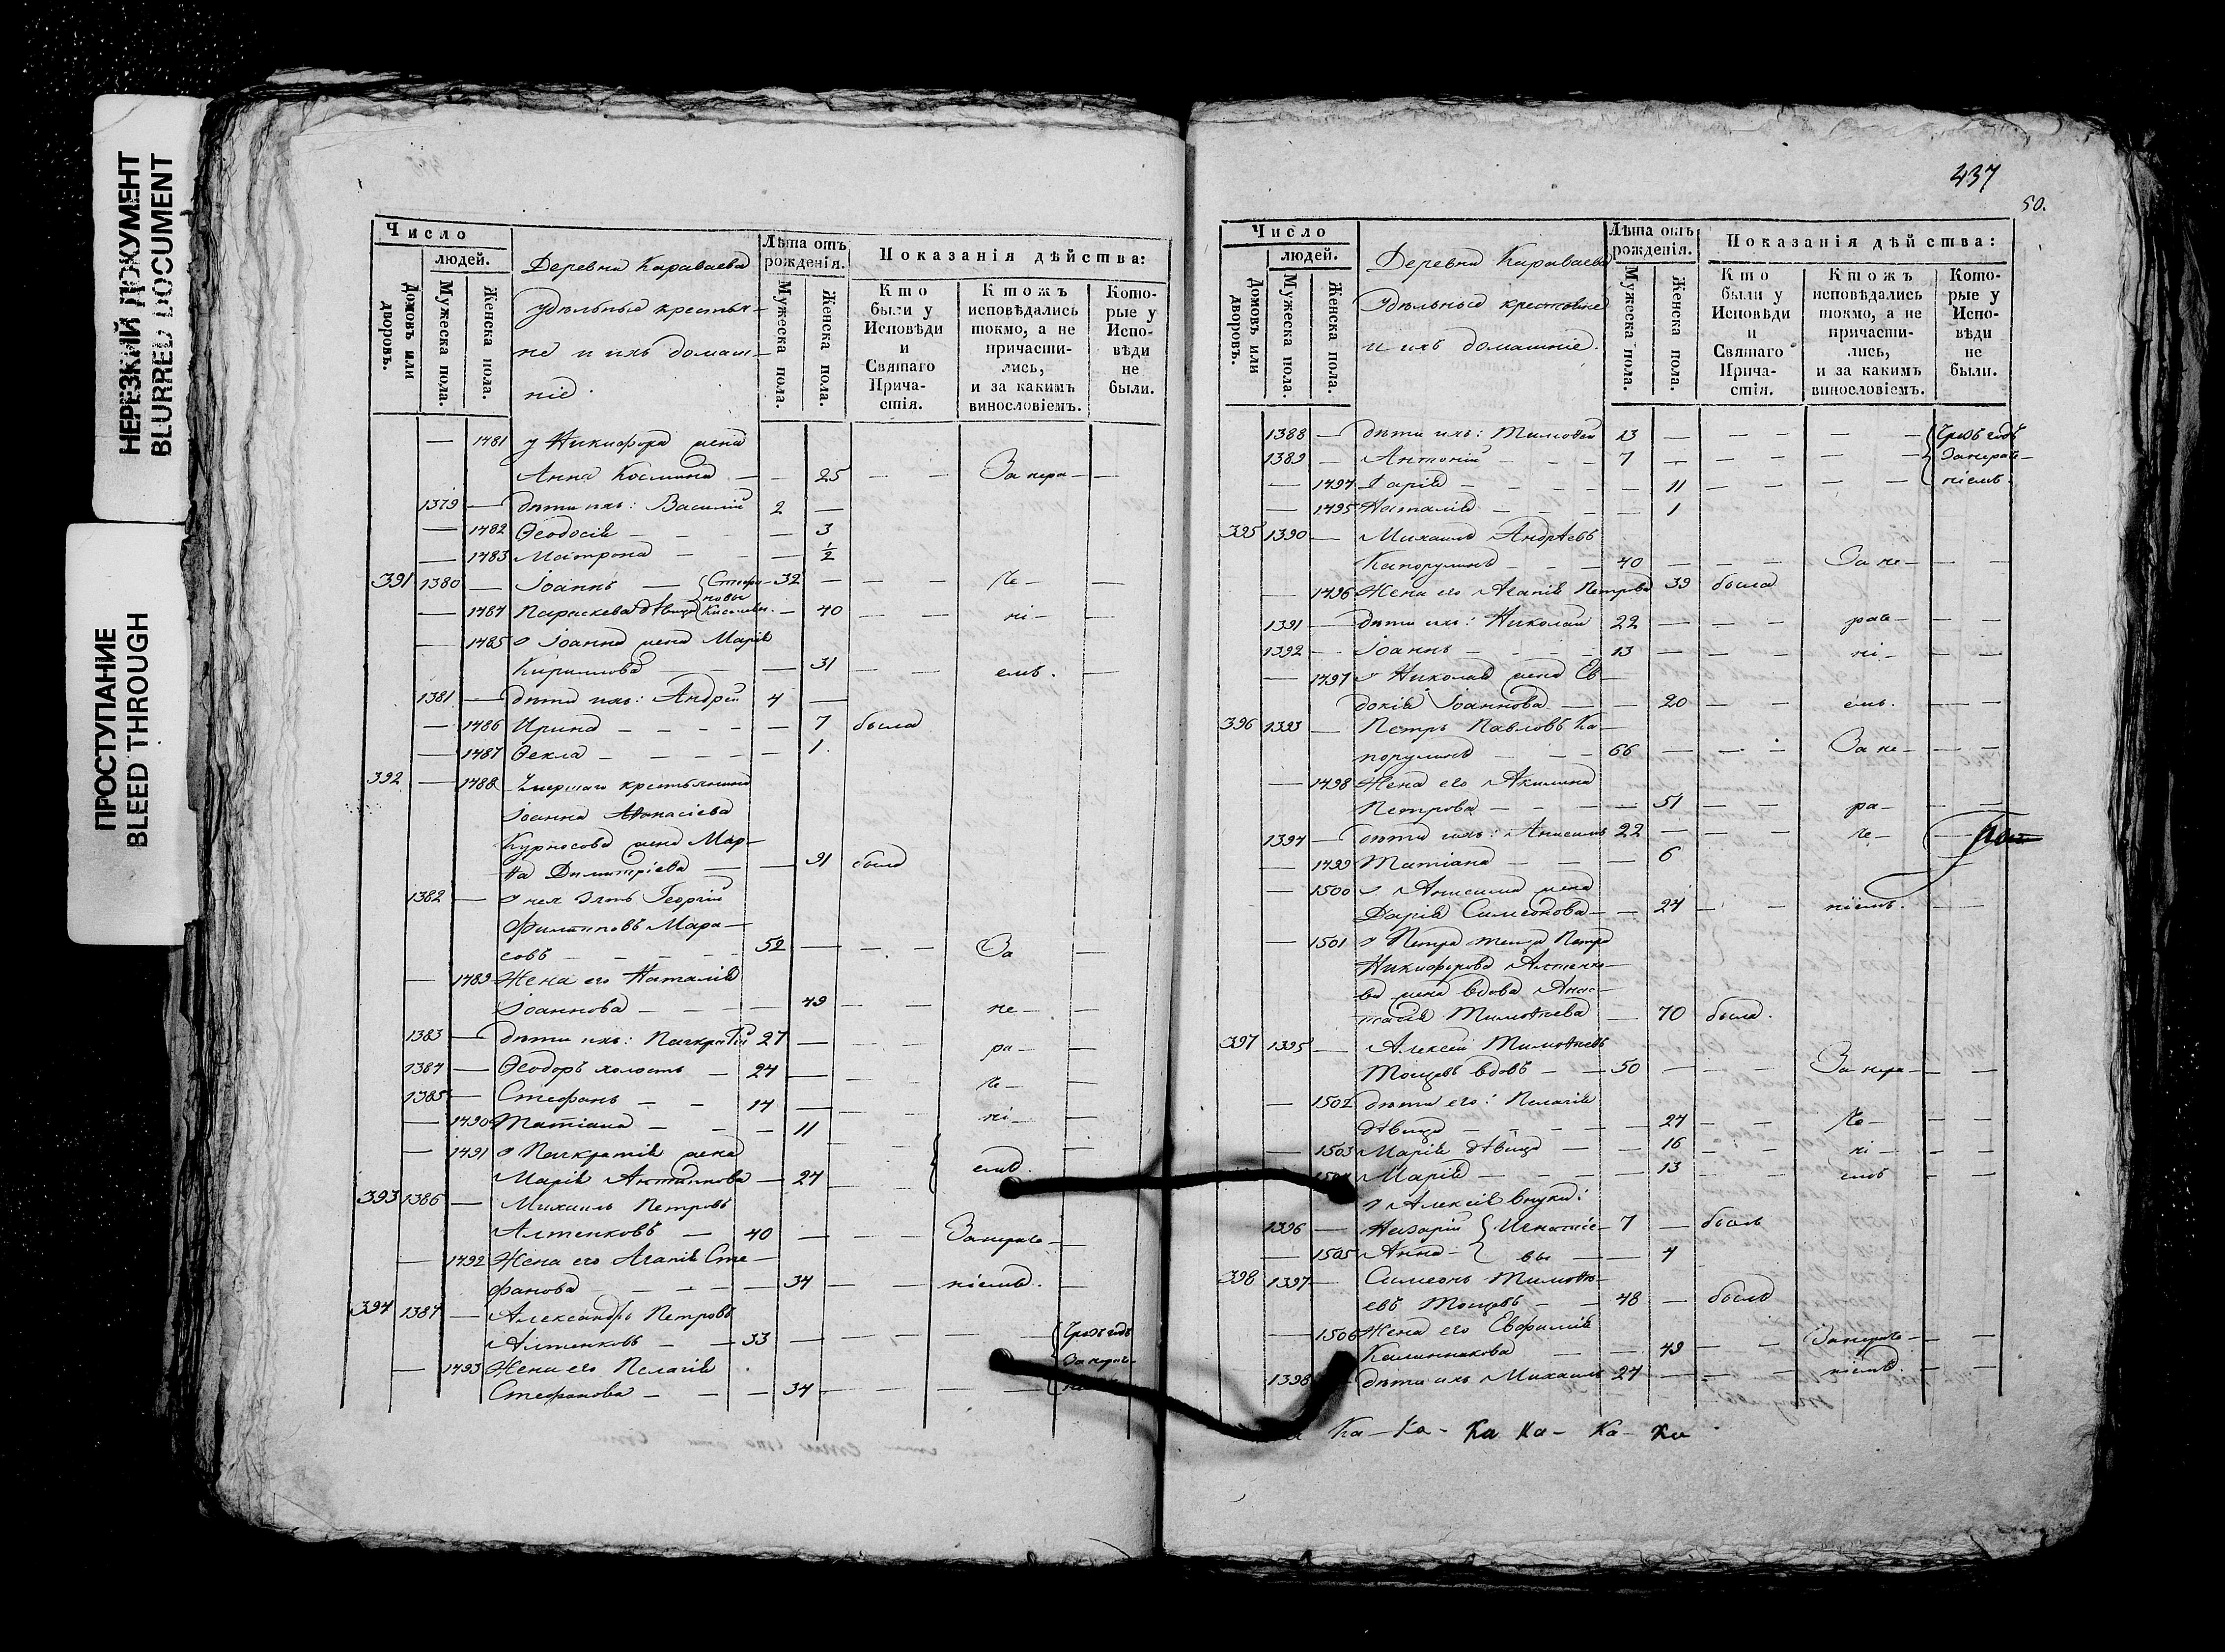 НЕРЕЗКИЙ ДОКУМЕНТ
BLURRED DOCUMENT
ПРОСТУПАНИЕ
BLEED THROUGH
Число
людей.
Домовъ или дворовъ.
Мужеска пола.
Женска пола.
Деревни Караваева
удѣльные крестья-
не и ихъ домаш-
ніе.
Лѣта отъ рожденія.
Мужеска пола.
Женска пола.
Показанія дѣйства:
Кто были у Исповѣди и Святаго Прича- стія.
Ктожъ исповѣдались токмо, а не причасти- лись, и за какимъ винословіемъ.
Кото- рые у Испо- вѣди не были.
— 1481 у Никифора жена
Анна Космина — — 25 — — За нера- —
1379 — дѣти ихъ: Василій 2 —
— 1482 Ѳеодосія — — — — 3
— 1483 Матрона — — — ½
391 1380 — Іоаннъ — 32 — — — че- —
— 1484 Параскева дѣвица — 40 — — ні- —
— 1485 у Іоанна жена Марія
Кириллова — — — 31 — — емъ. —
1381 — дѣти ихъ: Андрей 4 —
— 1486 Ирина — — — — — 7 была
— 1487 Ѳекла — — — — — 1.
392 — 1488 Умершаго крестьянина
Іоанна Аѳанасіева
Курносова жена Мар-
ѳа Димитріева — — 91 была
1382 — у нея зять Георгій
Филипповъ Мара-
совъ — — — — — 52 — — — За —
— 1489 Жена его Наталія
Іоаннова — — — — 49 — — не- —
1383 — дѣти ихъ: Панкратій 27 — ра- —
1384 — Ѳеодоръ холостъ — 24 — — — че- —
1385 — Стефанъ — — 14 — — —
— 1490 Татіана — — — 11 ні- —
— 1491 у Панкратія жена
Марія — 24 — — емъ.
393 1386 — Михаилъ Петровъ
Алтенковъ — 40 — — — За нерач- —
— 1492 Жена его Агапія Сте-
фанова — — — — 34 — — ніемъ. —
394 1387 — Александръ Петровъ
Алтенковъ — — 33 — — — — Чрезъ годъ
— 1493 Жена его Пелагія За нерач-
Стефанова — — — 34 — — — —
437
50.
Число
людей.
Домовъ или дворовъ.
Мужеска пола.
Женска пола.
Деревни Караваева
Удѣльные крестьяне
и ихъ домашніе.
Лѣта отъ рожденія.
Мужеска пола.
Женска пола.
Показанія дѣйства:
Кто были у Исповѣди и Святаго Прича- стія.
Ктожъ исповѣдались токмо, а не причасти- лись, и за какимъ винословіемъ.
Кото- рые у Испо- вѣди не были.
1388 — дѣти ихъ: Тимоѳей 13 — — — — — Чрезъ годъ
1389 — Антоній — — — 7 — — — — — За нерач-
— 1494 Дарія — — — — — 11 — — — — ніемъ.
— 1495 Наталія — — — — 1
395 1390 — Михаилъ Андреевъ
Капорулинъ — — — 40 — — — За не- — —
— 1496 Жена его Агапія Петрова 39 была
1391 — дѣти ихъ: Николай 22 — — — рач- — —
1392 — Іоаннъ — — — — 13 — — — ні- — —
— 1497 у Николая жена Ев-
докія Іоаннова — — 20 — — емъ. — —
396 1393 — Петръ Павловъ Ка-
порулинъ — — 66 — — — За не- — —
— 1498 Жена его Акилина
Петрова — — — — 51 — — ра- — —
1394 — дѣти ихъ: Анисимъ 22 — — — че- —
— 1499 Татіана — — — 6
— 1500 у Анисима жена
Дарія Симеонова — — 24 — — ніемъ. — —
— 1501 у Петра теща Петра
Никифорова Алтенко-
ва жена вдова Анас-
тасія Тимоѳеева — 70 была.
397 1395 — Алексій Тимоѳеевъ
Тощевъ вдовъ — — 50 — — — За нера- — —
— 1502 дѣти его: Пелагія
дѣвица — — — — 24 — — че- — —
— 1503 Марія дѣвица — — 16 — — ні- — —
Марія — — — — 13 — — емъ — —
у Алексія внуки:
1396 — Назарій Игнатіе- 7 — былъ
— 1505 Анна — вы — — 4
398 1397 — Симеонъ Тимоѳе-
евъ Тощевъ — — 48 — былъ
— 1506 Жена его Евфимія
Калинникова — — 49 — — За нерач- — —
1398 — дѣти ихъ Михаилъ 24 — — — ніемъ. — —
Ка- Ка- Ка Ка- Ка- Ка